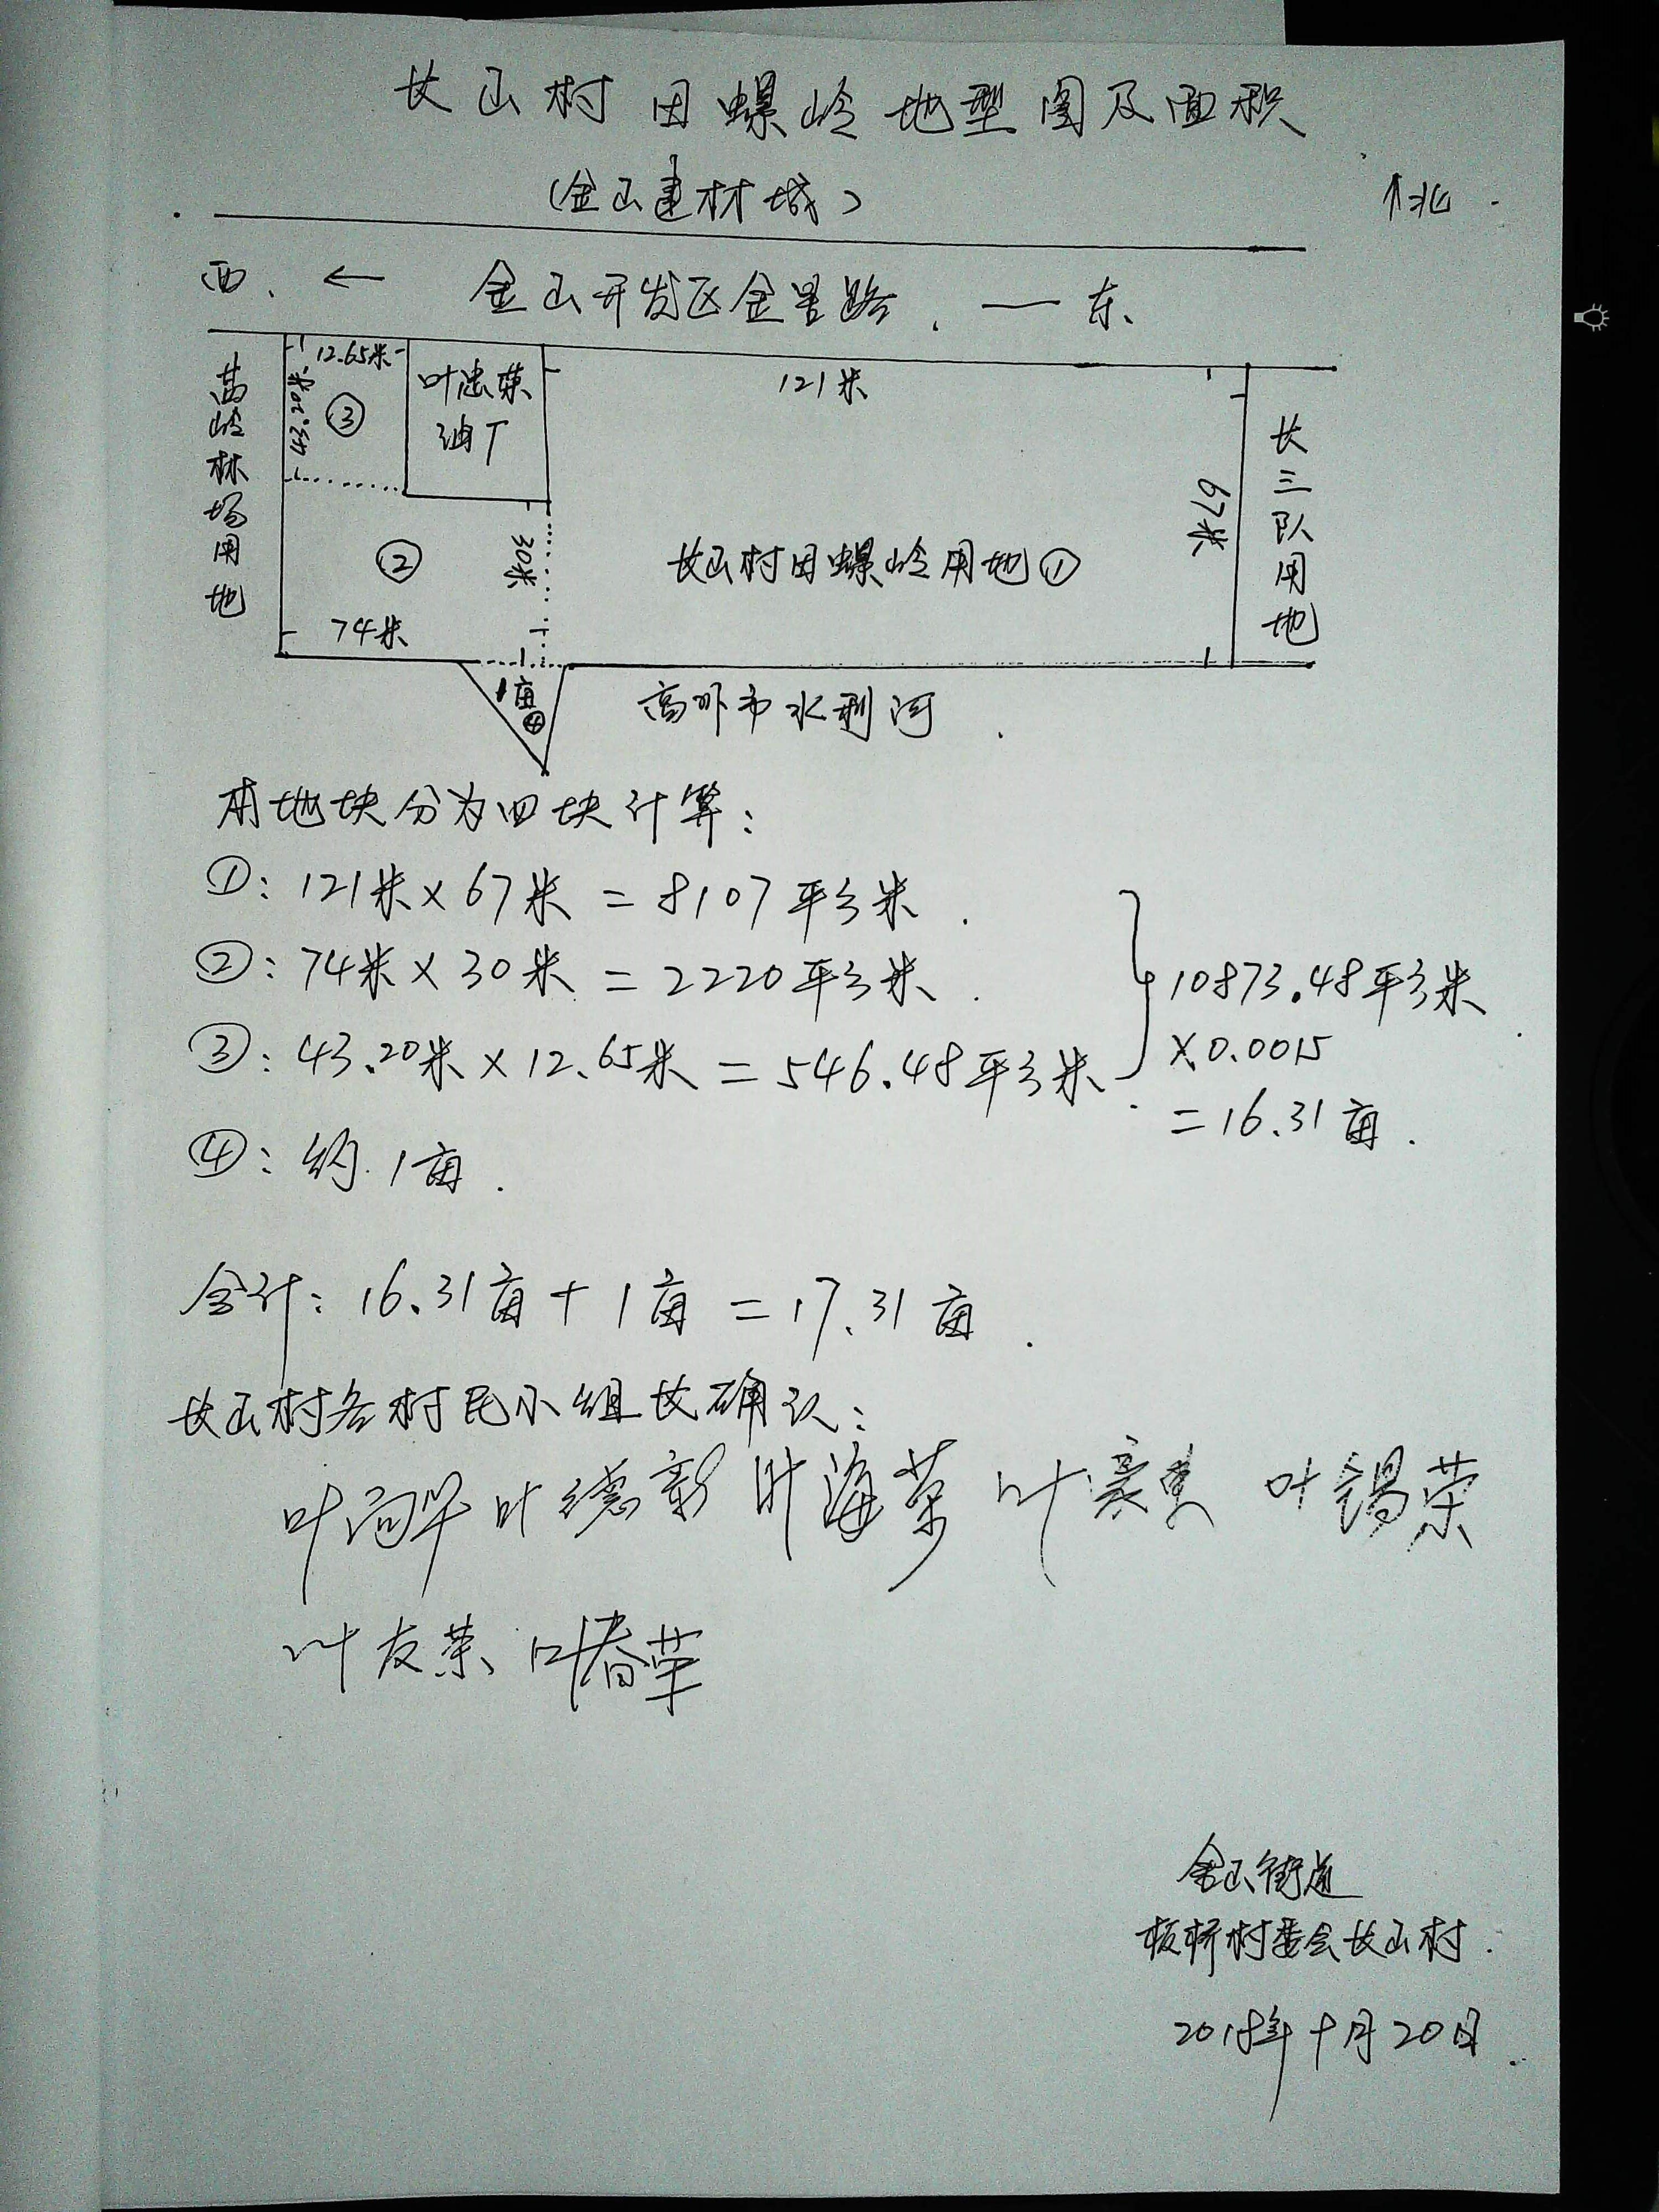 长山村田螺岭地型图及面积
(金山建材城)
↑北
西、← 金山开发区金圣路、一东、
12.65米
43.20米
③
叶忠荣
油厂
121米
67米
高岭林场用地
长三队用地
②
30米
长山村田螺岭用地①
74米
1亩
④
高州市水利河
本地块分为四块计算:
①: 121米×67米=8107平方米.
②: 74米×30米=2220平方米.
③: 43.20米×12.65米=546.48平方米
10873.48平方米
×0.0015
=16.31亩.
④: 约1亩.
合计: 16.31亩+1亩=17.31亩.
长山村各村民小组长确认:
叶德新 叶海荣 叶锡荣
叶友荣、叶春荣
金山街道
板桥村委会长山村.
2018年十月20日.